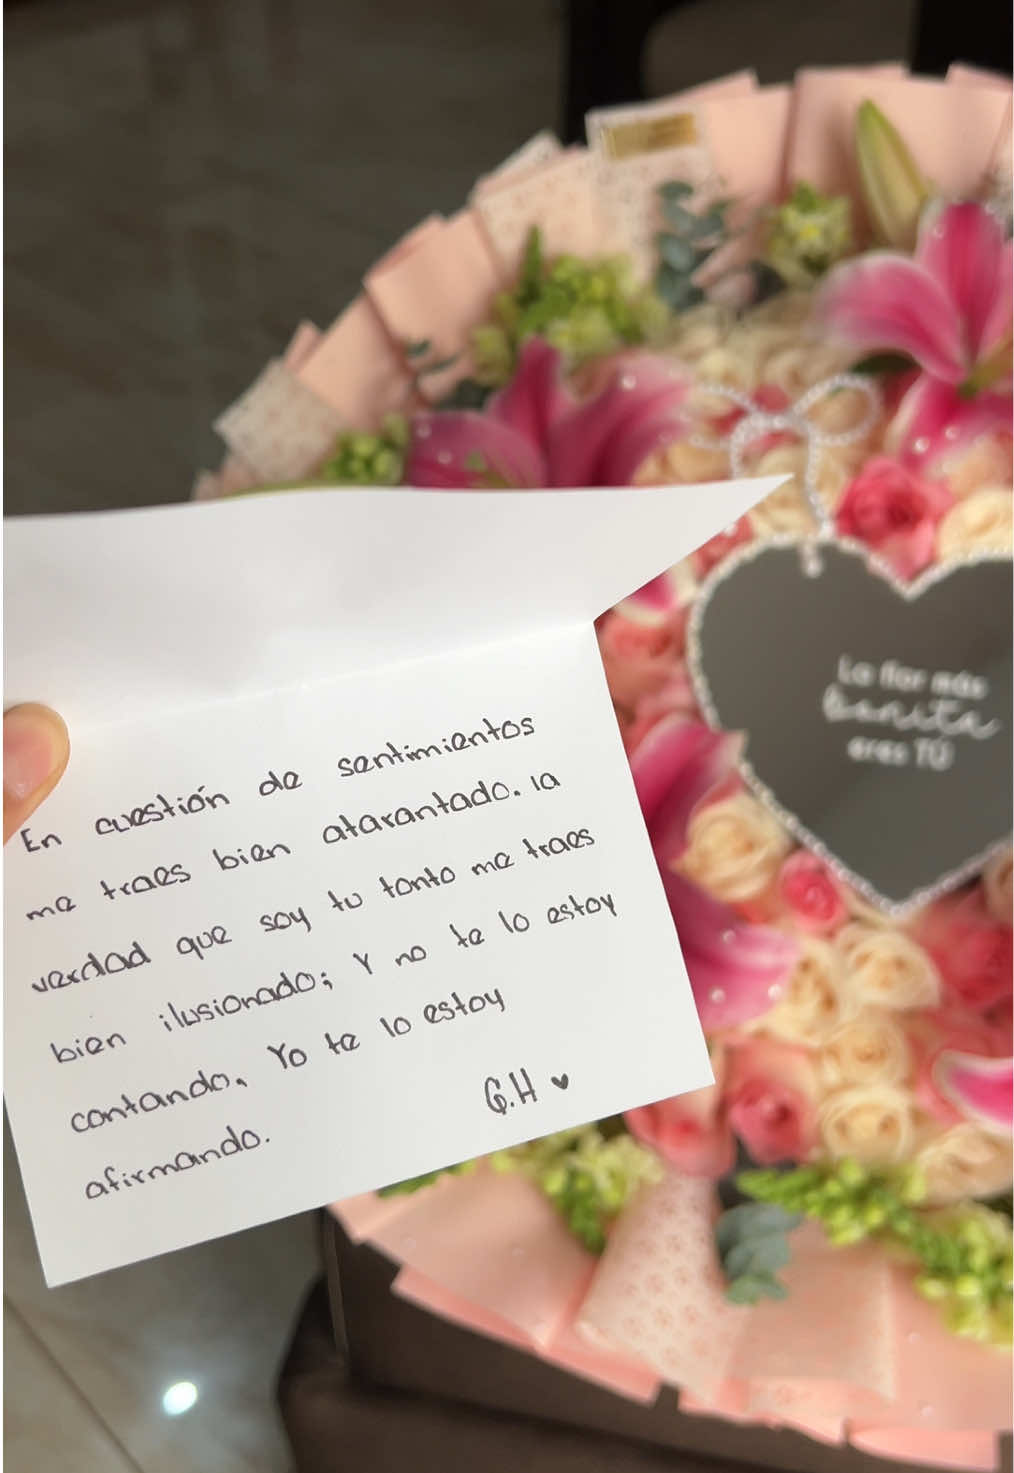 En cuestión de sentimientos
me traes bien atarantado. la
verdad que soy tu tonto me traes
bien ilusionado; Y no te lo estoy
contando, Yo te lo estoy
afirmando.
G.H
La flor más
bonita
eres TÚ